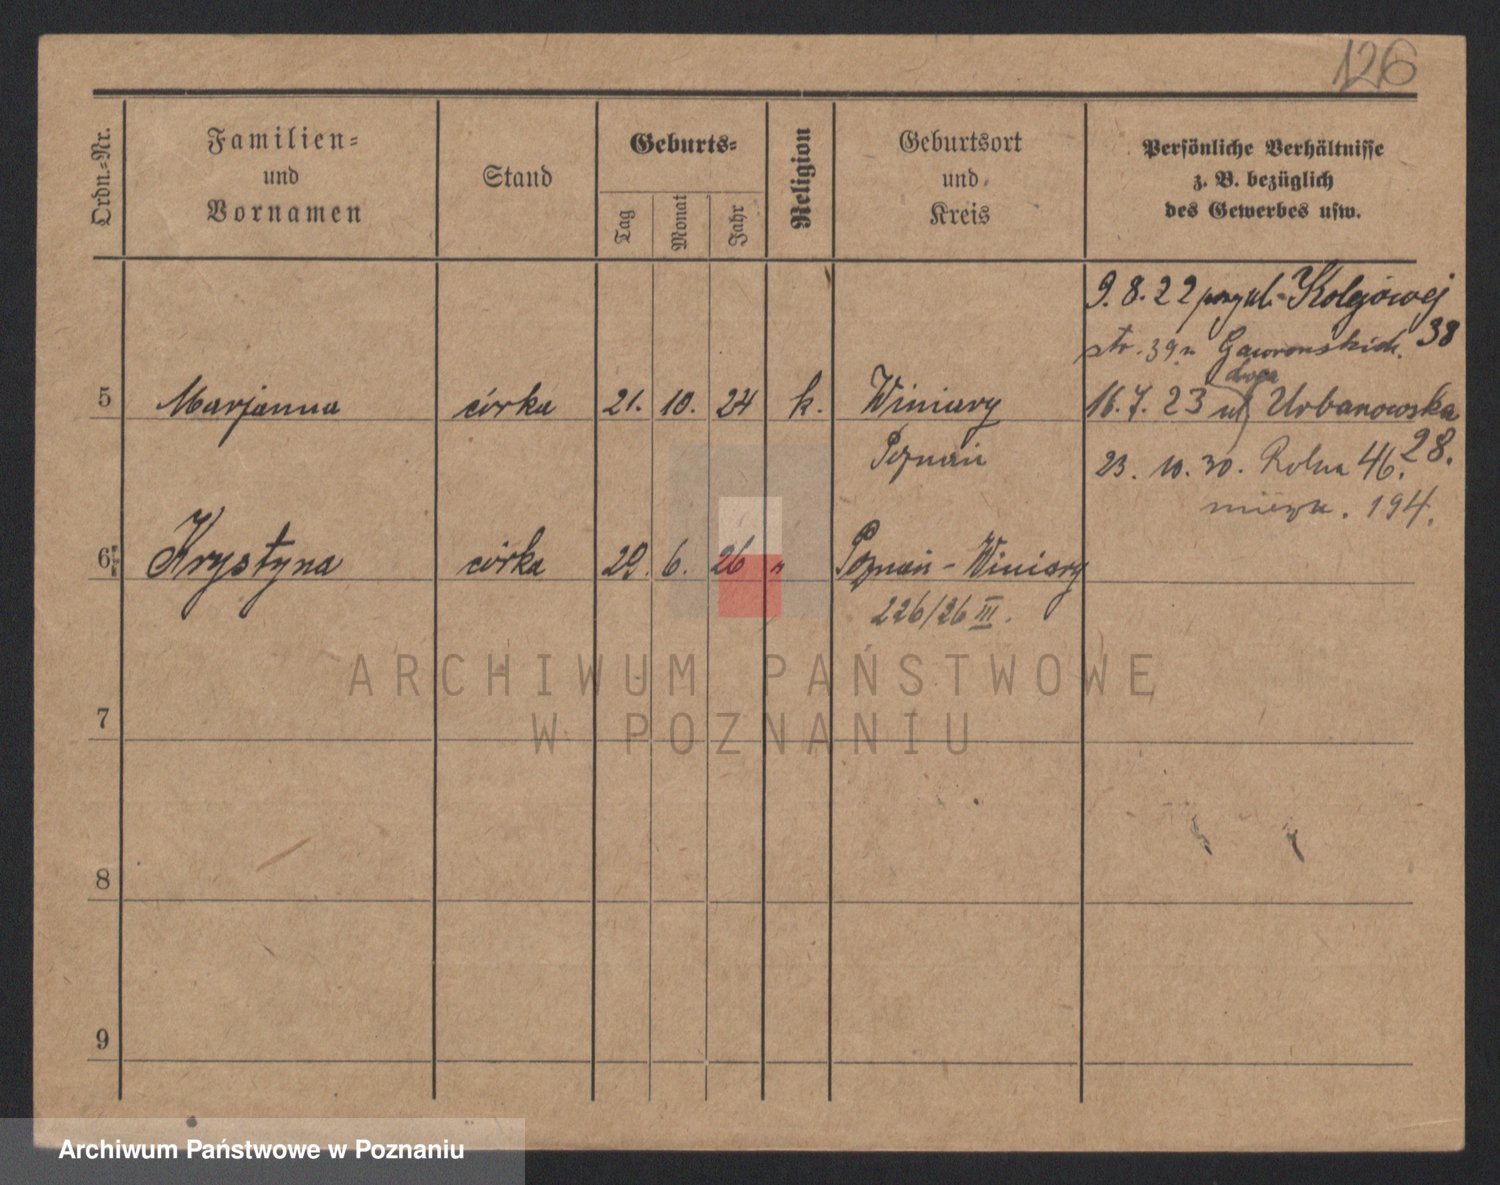 126
Ordn.-Nr.
Familien-
und
Vornamen
Stand
Geburts-
Tag
Monat
Jahr
Religion
Geburtsort
und
Kreis
Persönliche Verhältnisse
z. B. bezüglich
des Gewerbes usw.
9. 8. 22 przy ul. Kolejowej
str. 39 u Gaworonskich. 38
5 Marjanna córka 21. 10. 24 k. Winiary
Poznań
16. 7. 23 ul Urbanowska
28.
23. 10. 30. Rolna 46.
194.
6 Krystyna córka 29. 6. 26 " Poznań - Winiary
226/26 III.
7
8
9
ARCHIWUM PAŃSTWOWE
W POZNANIU
Archiwum Państwowe w Poznaniu